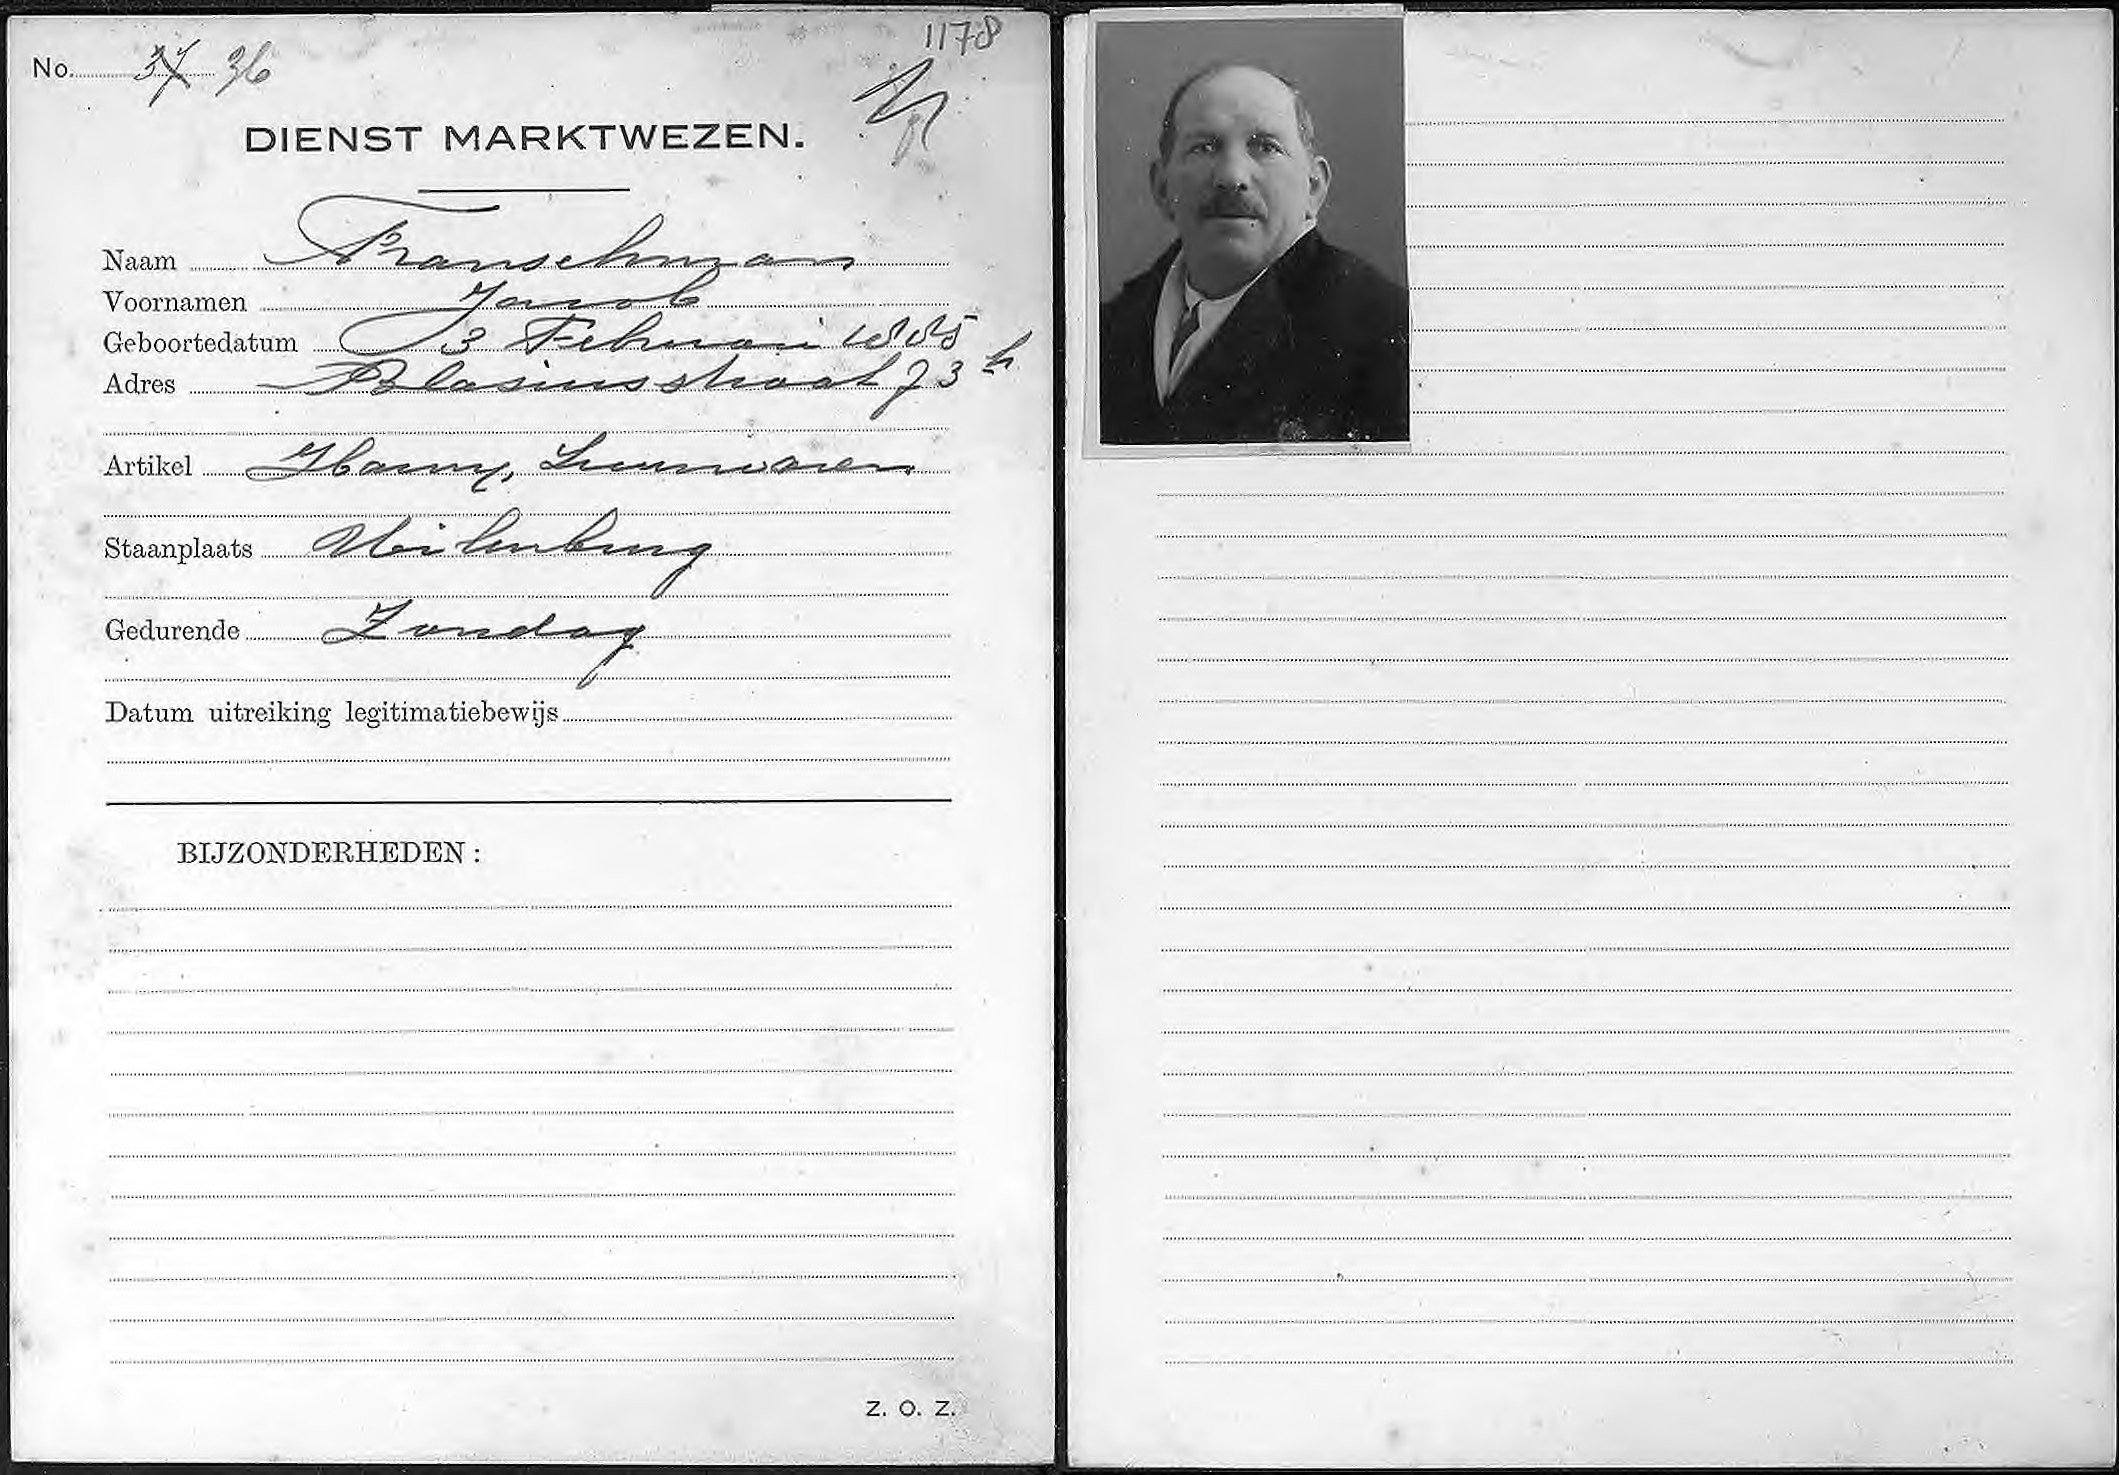 1178
No. 37 36
DIENST MARKTWEZEN.
Naam Franschman
Voornamen Jacob
Geboortedatum 3 Februari 1885
Adres Blasiusstraat 73 h
Artikel Harny, Leerwaren
Staanplaats Uilenburg
Gedurende Zondag
Datum uitreiking legitimatiebewijs
BIJZONDERHEDEN :
Z. O. Z.